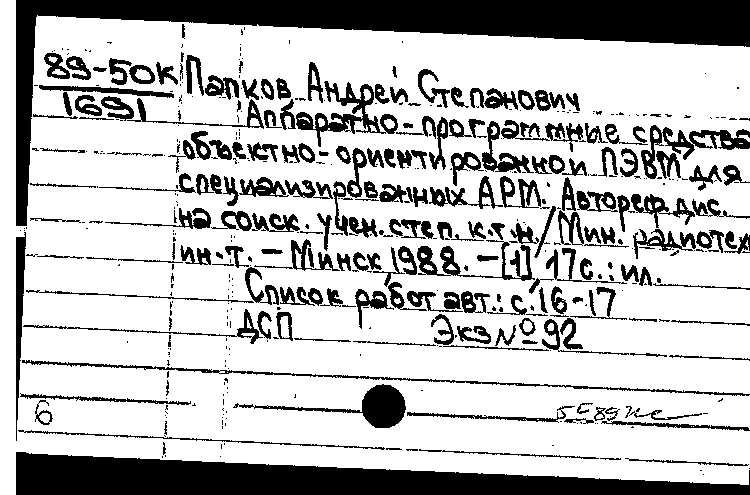 89-50К Папков Андрей Степанович
1691
Аппаратно-программные средства
объектно-ориентированной ПЭВМ для
специализированных АРМ: Автореф. дис.
на соиск. учен. степ. к.т.н. / Мин. радиотех
ин-т. — Минск 1988. — [1], 17 с.: ил.
Список работ авт.: с. 16-17
ДСП Экз № 92
6